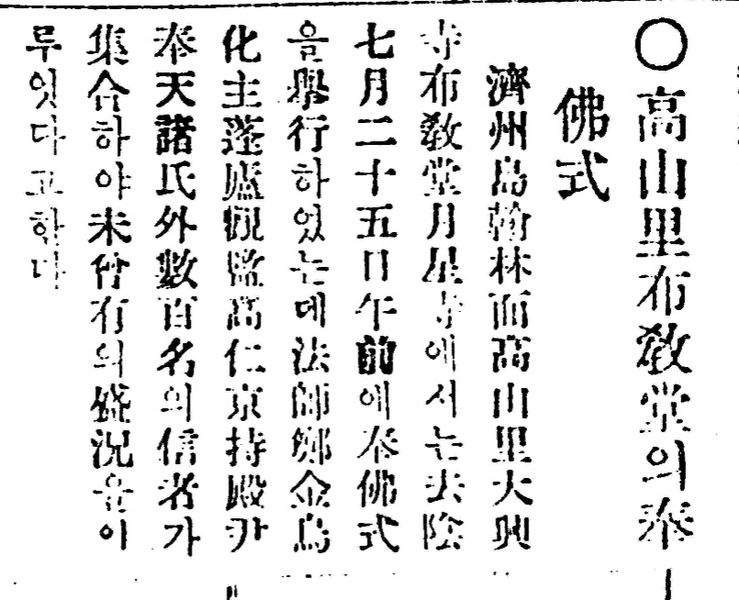 ○高山里布敎堂의奉
佛式
濟州島翰林面高山里大興
寺布敎堂月星寺에서는去陰
七月二十五日午前에奉佛式
을擧行하엿는데法師鄭金烏
化主蓬廬觀監高仁京持殿尹
奉天諸氏外數百名의信者가
集合하야未曾有의盛況을이
루엇다고한다